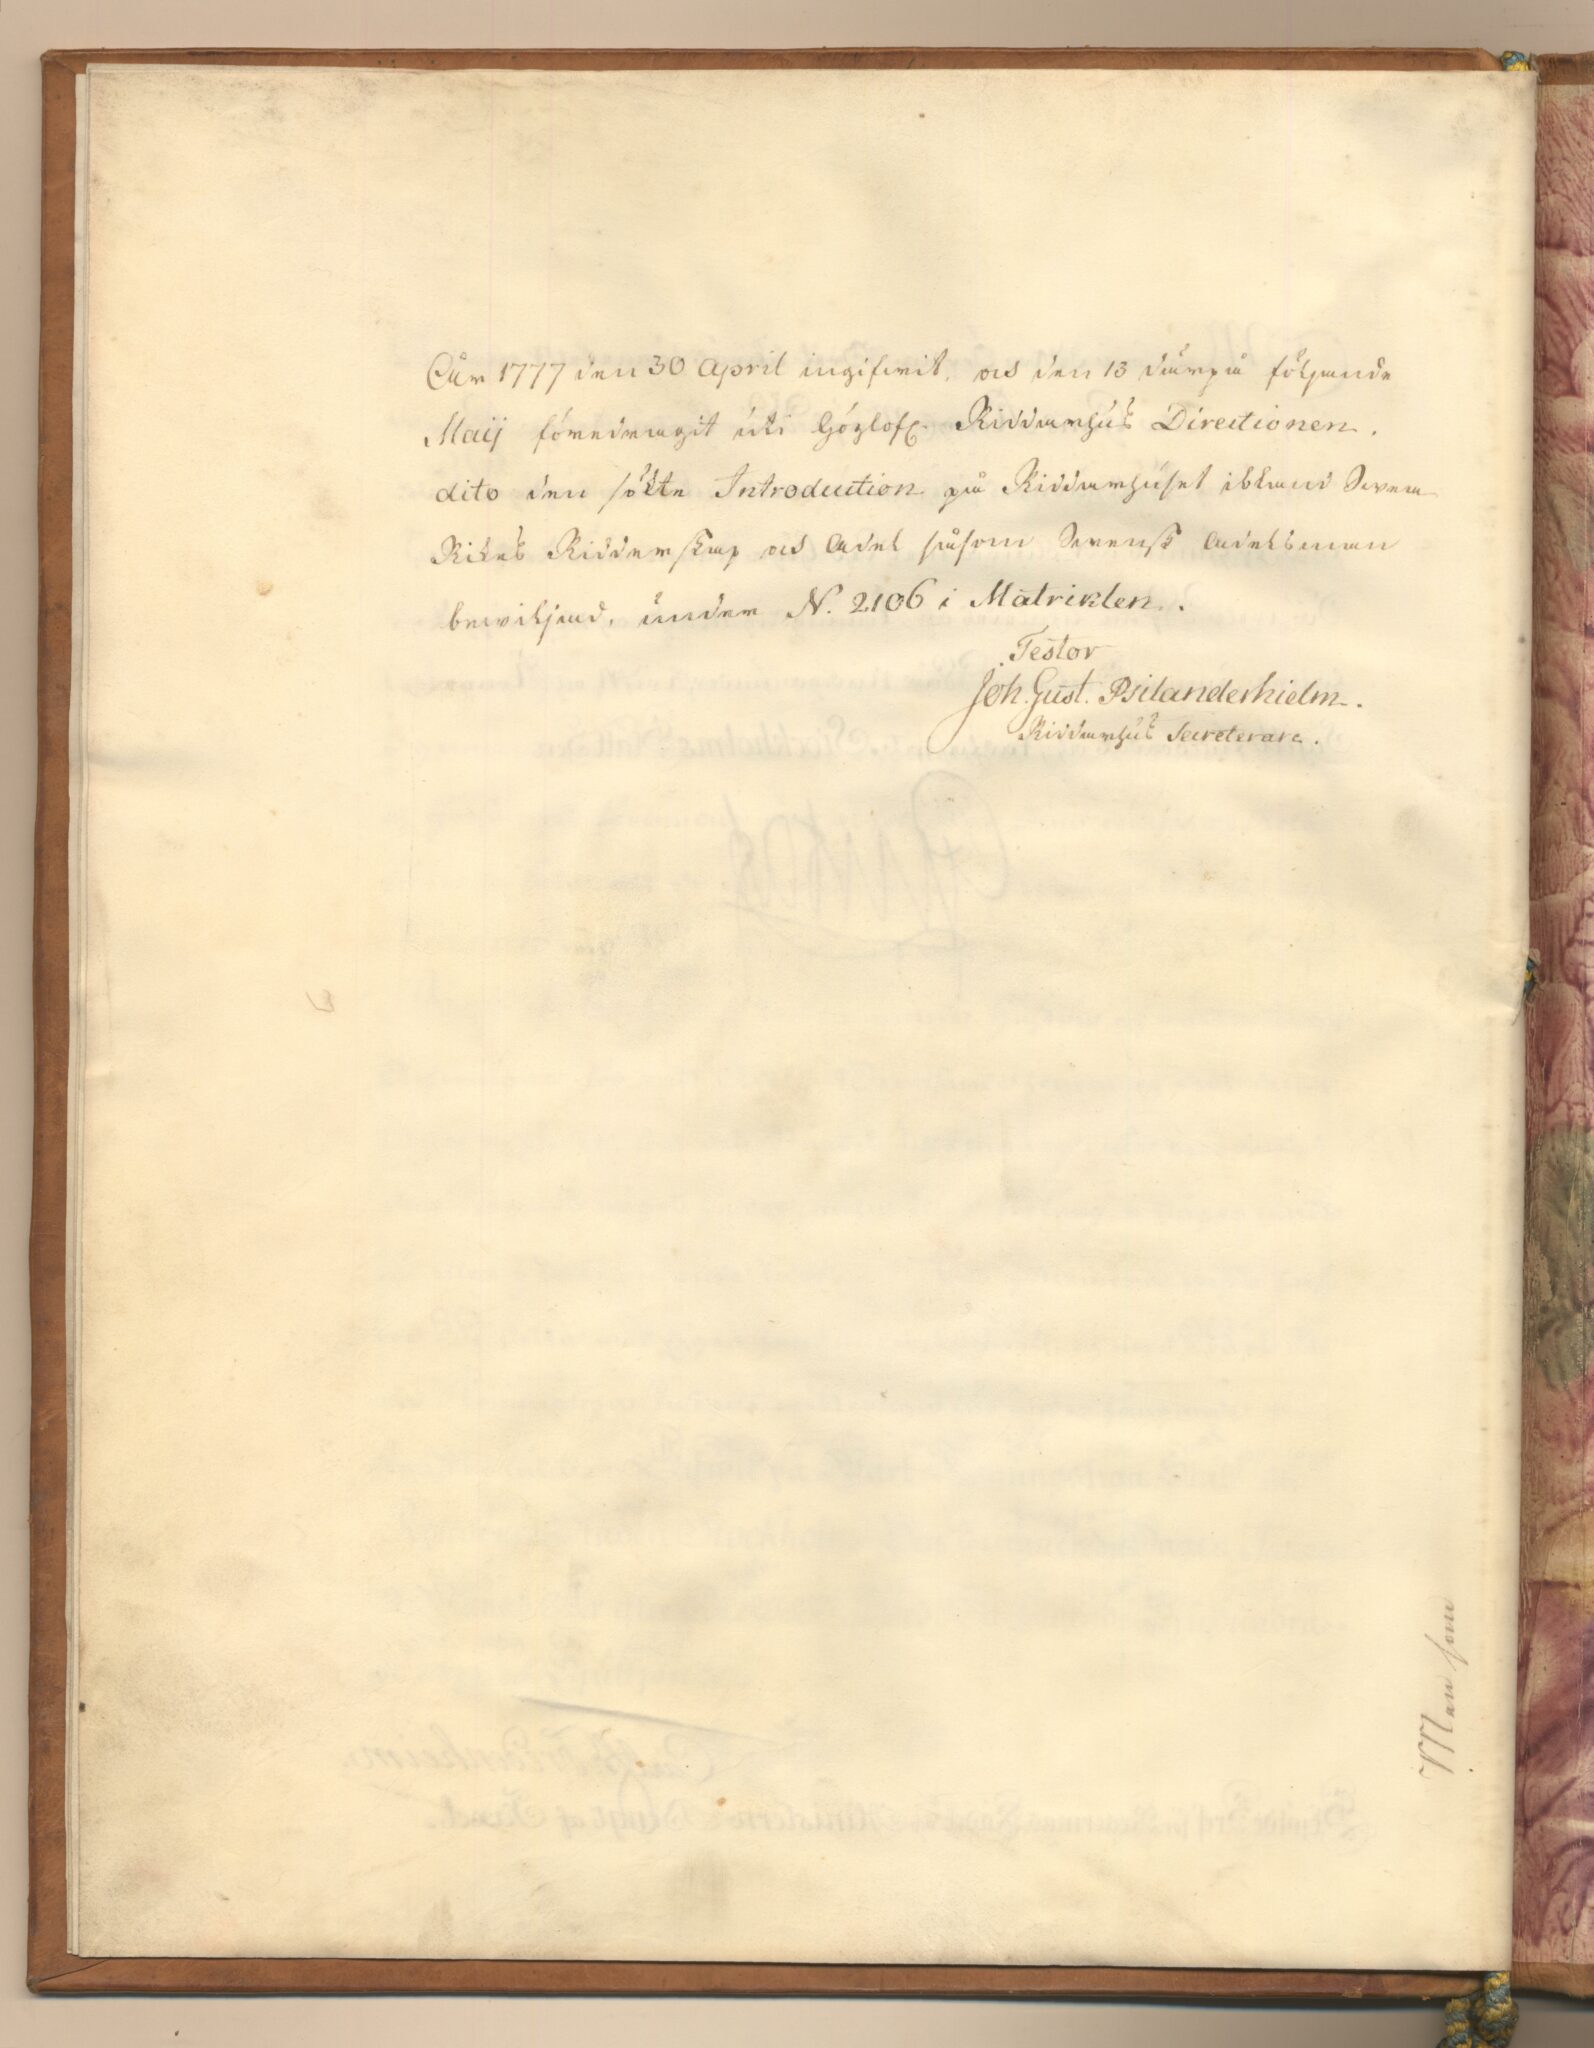 År 1777 den 30 April ingifwit, och den 13 därpå följande
Maij föredragit uti Höglofl. Riddarhus Directionen,
dito den sökte Introduction på Riddarhuset ibland Swea
Rikes Ridderskap och Adel såsom Swensk Adelsman
bewiljad, under N. 2106 i Matriklen.
Testor
Joh. Gust. Psilanderhielm.
Riddarhus Secreterare.
Men som